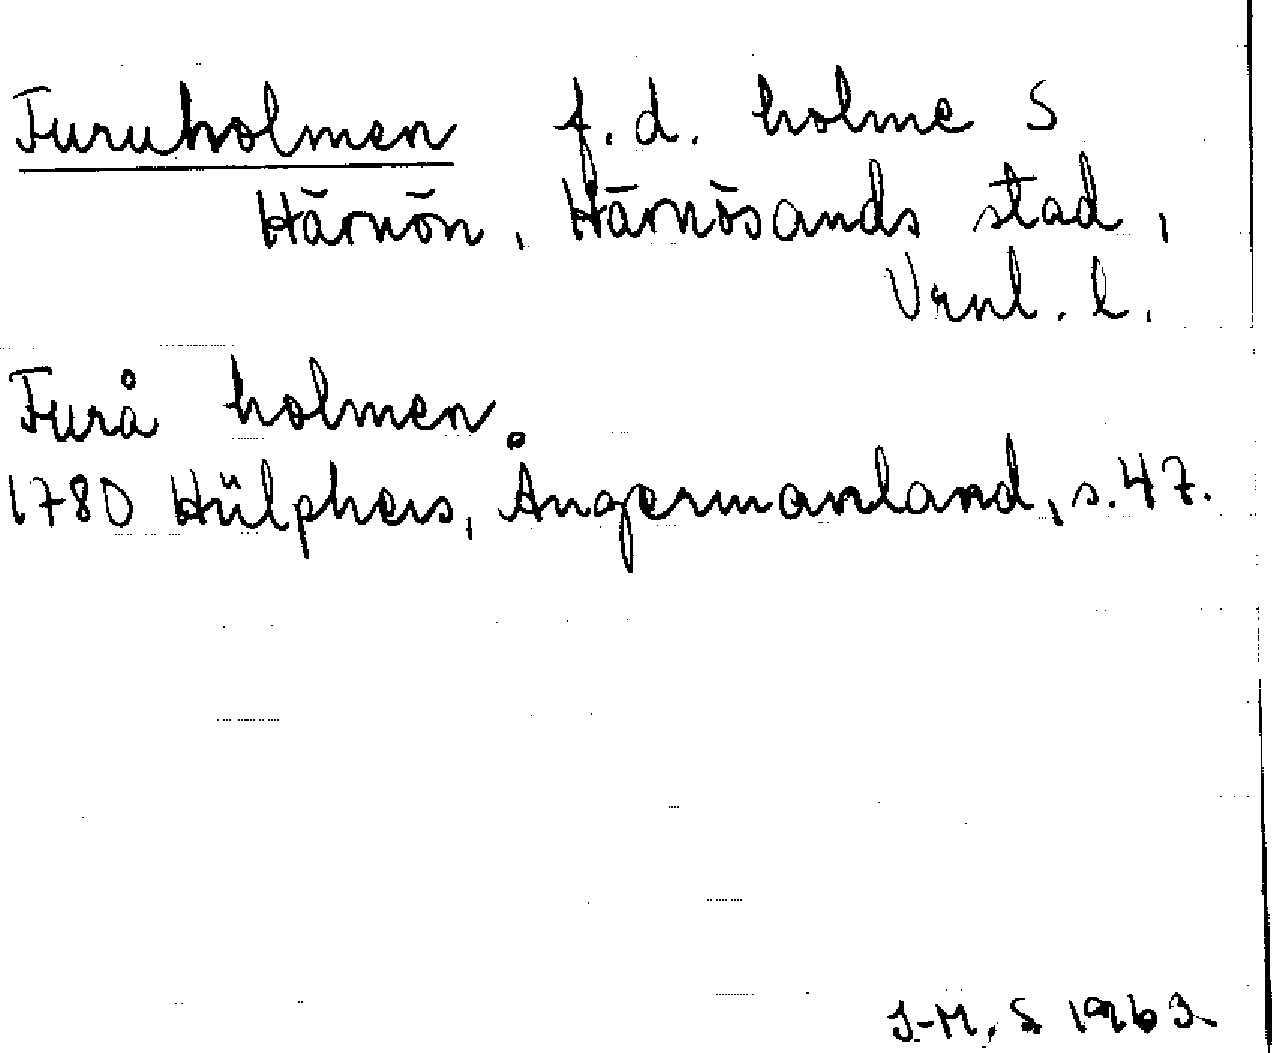 Furuholmen f.d. holme S
Härnön, Härnösands stad,
Vrnl. l.
Furå holmen
1780 Hülphers, Ångermanland, s. 47.
J-M. S 1963